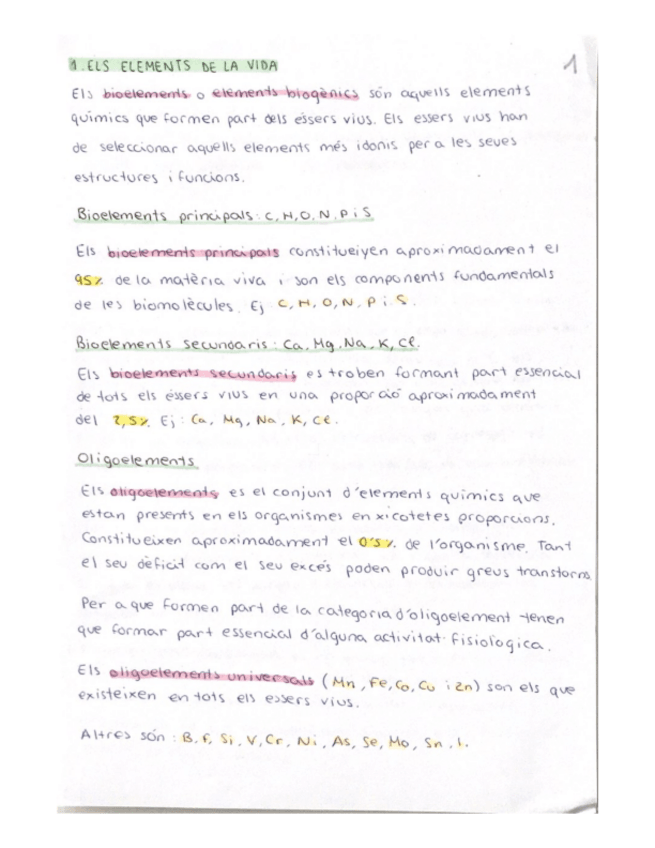 1. ELS ELEMENTS DE LA VIDA
1
Els bioelements o elements biogènics són aquells elements
químics que formen part dels éssers vius. Els essers vius han
de seleccionar aquells elements més idonis per a les seues
estructures i funcions.
Bioelements principals: C, H, O, N, P i S
Els bioelements principals constitueiyen aproximadament el
95% de la matèria viva i son els components fundamentals
de les biomolècules. Ej C, H, O, N, P i S.
Bioelements secundaris: Ca, Mg, Na, K, Cl.
Els bioelements secundaris es troben formant part essencial
de tots els éssers vius en una proporció aproximadament
del 2,5% Ej: Ca, Mg, Na, K, Cl.
Oligoelements
Els oligoelements es el conjunt d'elements químics que
estan presents en els organismes en xicotetes proporcions.
Constitueixen aproximadament el 0'5% de l'organisme. Tant
el seu dèficit com el seu excés poden produir greus transtorns
Per a que formen part de la categoria d'oligoelement tenen
que formar part essencial d'alguna activitat fisiologica.
Els oligoelements universals (Mn, Fe, Co, Cu i Zn) son els que
existeixen en tots els essers vius.
Altres són: B, F, Si, V, Cr, Ni, As, Se, Mo, Sn, I.